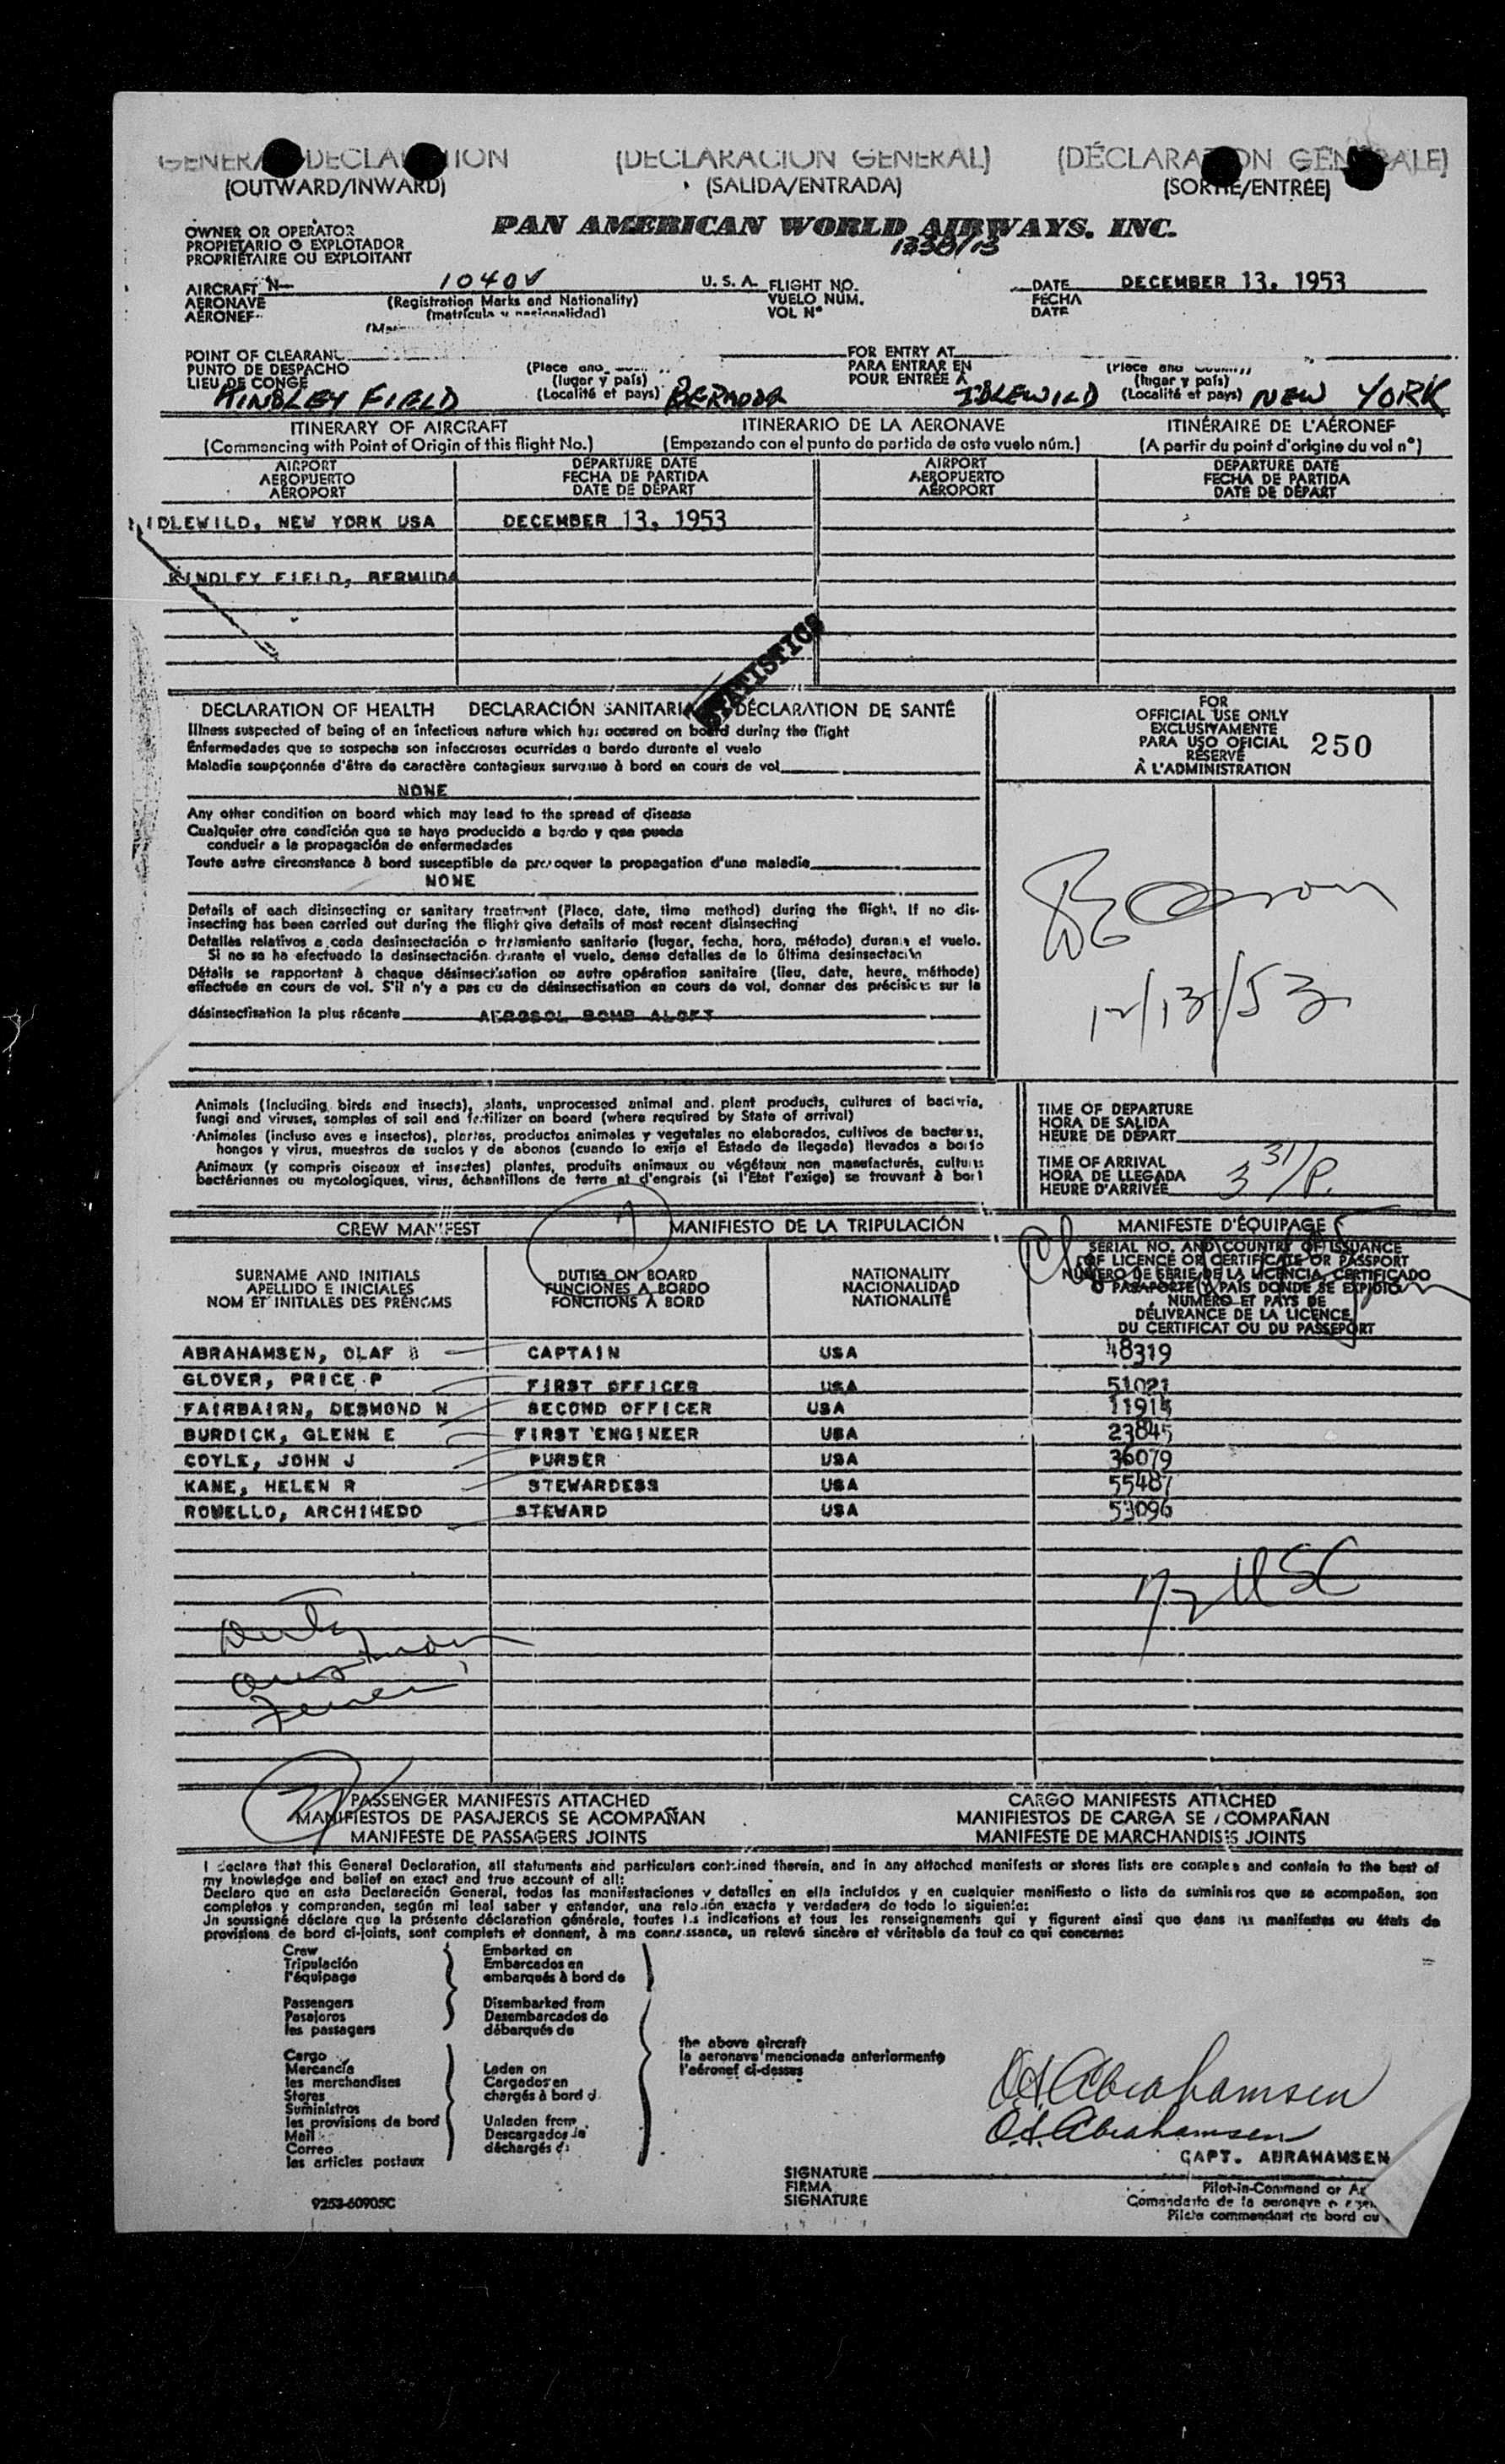 GENERAL DECLARATION (DECLARACION GENERAL) (DÉCLARATION GENERALE)
(OUTWARD/INWARD) (SALIDA/ENTRADA) (SORTIE/ENTRÉE)
OWNER OR OPERATOR PAN AMERICAN WORLD AIRWAYS. INC.
PROPIETARIO O EXPLOTADOR
PROPRIÉTAIRE OU EXPLOITANT
AIRCRAFT N- 1040V U. S. A. FLIGHT NO. DATE DECEMBER 13, 1953
AERONAVE (Registration Marks and Nationality) VUELO NUM. FECHA
AÉRONEF (matrícula y nacionalidad) VOL N° DATE
POINT OF CLEARANC FOR ENTRY AT
PUNTO DE DESPACHO (Place and PARA ENTRAR EN (Place and
LIEU DE CONGÉ (lugar y país) POUR ENTRÉE A (lugar y país)
KINDLEY FIELD (Localité et pays) BERMUDA IDLEWILD (Localité et pays) NEW YORK
ITINERARY OF AIRCRAFT ITINERARIO DE LA AERONAVE ITINÉRAIRE DE L'AÉRONEF
(Commencing with Point of Origin of this flight No.) (Empezando con el punto de partida de este vuelo núm.) (A partir du point d'origine du vol n°)
AIRPORT DEPARTURE DATE AIRPORT DEPARTURE DATE
AEROPUERTO FECHA DE PARTIDA AEROPUERTO FECHA DE PARTIDA
AÉROPORT DATE DE DÉPART AÉROPORT DATE DE DÉPART
IDLEWILD, NEW YORK USA DECEMBER 13, 1953
KINDLEY FIELD, BERMUDA
STATISTICS
DECLARATION OF HEALTH DECLARACIÓN SANITARIA DÉCLARATION DE SANTÉ
Illness suspected of being of an infectious nature which has occured on board during the flight
Enfermedades que se sospecha son infecciosas ocurridas a bordo durante el vuelo
Maladie soupçonnée d'être de caractère contagieux survenue à bord en cours de vol
NONE
Any other condition on board which may lead to the spread of disease
Cualquier otra condición que se haya producido a bordo y que pueda
conducir a la propagación de enfermedades
Toute autre circonstance à bord susceptible de provoquer la propagation d'une maladie
NONE
Details of each disinsecting or sanitary treatment (Place, date, time method) during the flight. If no dis-
insecting has been carried out during the flight give details of most recent disinsecting
Detalles relativos a cada desinsectación o tratamiento sanitario (lugar, fecha, hora, método) durante el vuelo.
Si no se ha efectuado la desinsectación durante el vuelo, dense detalles de la última desinsectación
Détails se rapportant à chaque désinsectisation ou autre opération sanitaire (lieu, date, heure, méthode)
effectuée en cours de vol. S'il n'y a pas eu de désinsectisation en cours de vol, donner des précisions sur la
désinsectisation la plus récente AEROSOL BOMB ALOFT
FOR
OFFICIAL USE ONLY
EXCLUSIVAMENTE
PARA USO OFICIAL 250
RÉSERVÉ
À L'ADMINISTRATION
12/13/53
Animals (Including birds and insects), plants, unprocessed animal and plant products, cultures of bacteria,
fungi and viruses, samples of soil and fertilizer on board (where required by State of arrival)
Animales (incluso aves e insectos), plantas, productos animales y vegetales no elaborados, cultivos de bacterias,
hongos y virus, muestras de suelos y de abonos (cuando lo exija el Estado de llegada) llevados a bordo
Animaux (y compris oiseaux et insectes) plantes, produits animaux ou végétaux non manufacturés, cultures
bactériennes ou mycologiques, virus, échantillons de terre et d'engrais (si l'Etat l'exige) se trouvant à bord
TIME OF DEPARTURE
HORA DE SALIDA
HEURE DE DÉPART
TIME OF ARRIVAL
HORA DE LLEGADA 3 31/P.
HEURE D'ARRIVÉE
CREW MANIFEST 7 MANIFIESTO DE LA TRIPULACIÓN MANIFESTE D'ÉQUIPAGE
SURNAME AND INITIALS DUTIES ON BOARD NATIONALITY SERIAL NO. AND COUNTRY OF ISSUANCE
APELLIDO E INICIALES FUNCIONES A BORDO NACIONALIDAD OF LICENCE OR CERTIFICATE OR PASSPORT
NOM ET INITIALES DES PRÉNOMS FONCTIONS À BORD NATIONALITÉ NÚMERO DE SERIE DE LA LICENCIA, CERTIFICADO
O PASAPORTE Y PAIS DONDE SE EXPIDIO
NUMÉRO ET PAYS DE
DÉLIVRANCE DE LA LICENCE
DU CERTIFICAT OU DU PASSEPORT
ABRAHAMSEN, OLAF CAPTAIN USA 48319
GLOVER, PRICE P FIRST OFFICER USA 51021
FAIRBAIRN, DESMOND N SECOND OFFICER USA 11914
BURDICK, GLENN E FIRST ENGINEER USA 23845
COYLE, JOHN J PURSER USA 36079
KANE, HELEN R STEWARDESS USA 55487
ROMELLO, ARCHIMEDO STEWARD USA 53096
USC
PASSENGER MANIFESTS ATTACHED CARGO MANIFESTS ATTACHED
MANIFIESTOS DE PASAJEROS SE ACOMPAÑAN MANIFIESTOS DE CARGA SE ACOMPAÑAN
MANIFESTE DE PASSAGERS JOINTS MANIFESTE DE MARCHANDISES JOINTS
I declare that this General Declaration, all statuments and particulars contained therein, and in any attached manifests or stores lists are comple e and contain to the best of
my knowledge and belief an exact and true account of all:
Declaro que en esta Declaración General, todas las manifestaciones y detalles en ella incluídos y en cualquier manifiesto o lista de suministros que se acompañen, son
completos y comprenden, según mi leal saber y entender, una relación exacta y verdadera de todo lo siguiente:
Jn soussigné déclare que la présente déclaration générale, toutes les indications et tous les renseignements qui y figurent ainsi que dans les manifestes ou états de
provisions de bord ci-joints, sont complets et donnent, à ma connaissance, un relevé sincère et véritable de tout ce qui concerne:
Crew Embarked on
Tripulación Embarcados en
l'équipage embarqués à bord de
Passengers Disembarked from
Pasajeros Desembarcados de
les passagers débarqués de
the above aircraft
Cargo la aeronave mencionada anteriormente
Mercancía Laden on l'aéronef ci-dessus
les marchandises Cargados en
Stores chargés à bord d
Suministros
les provisions de bord Unladen from
Mail Descargados de
Correo déchargés d
les articles postaux
O.S. Abrahamsen
O.S. Abrahamsen
CAPT. ABRAHAMSEN
SIGNATURE
FIRMA Pilot-in-Command or A
SIGNATURE Comandante de la aeronave o
Pilote commandant de bord ou
9253-60905C